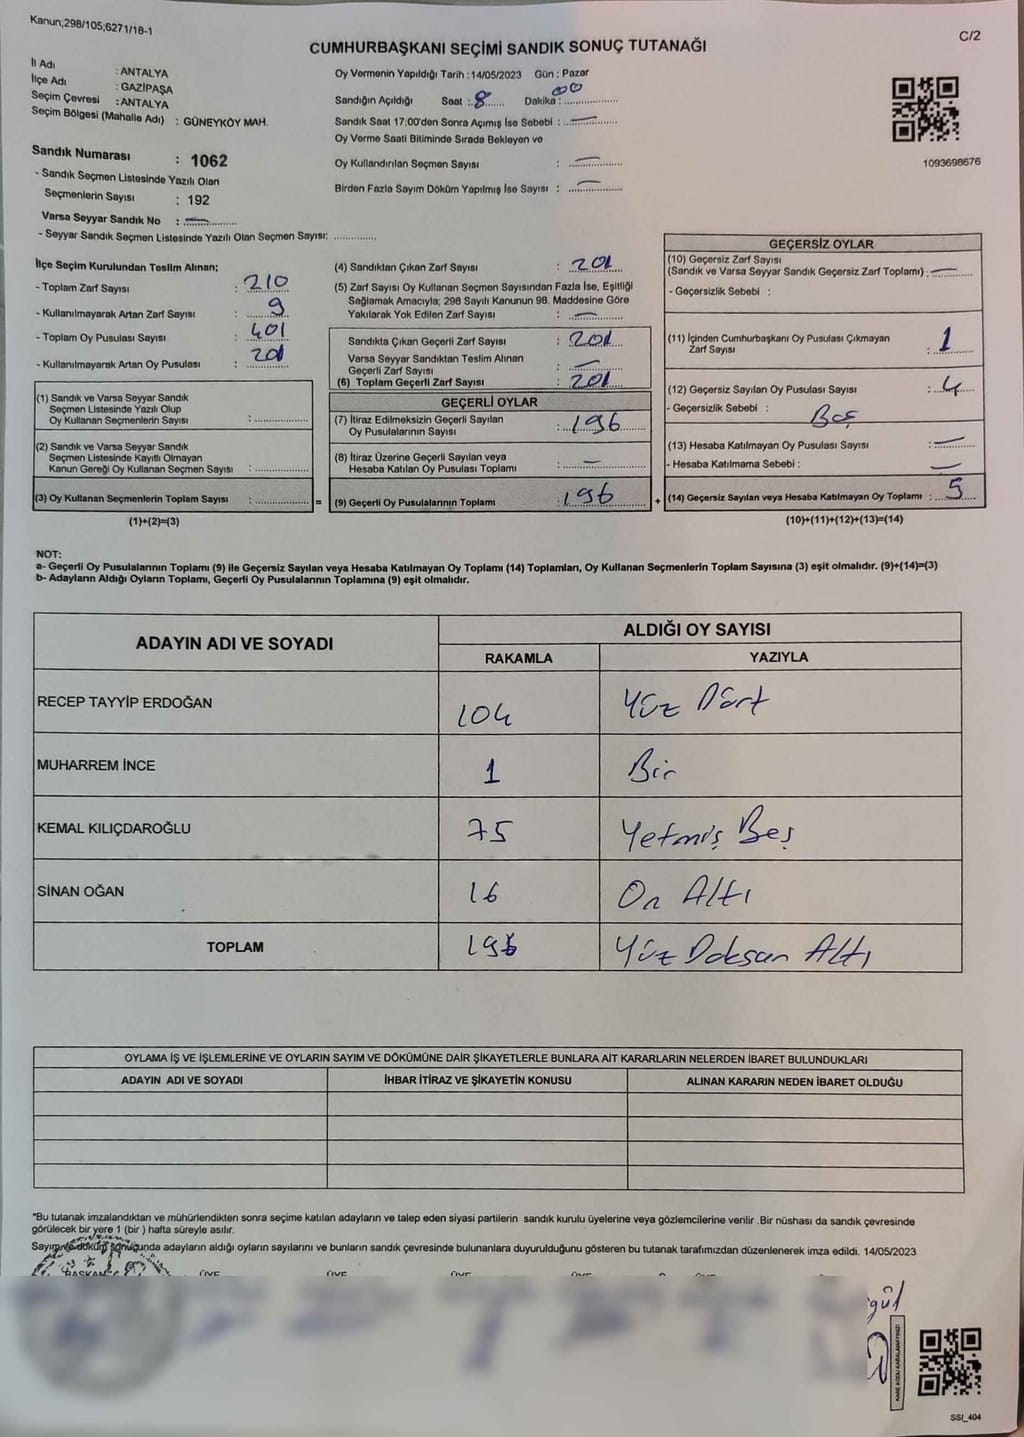 Kanun;298/105;6271/18-1
C/2
CUMHURBAŞKANI SEÇİMİ SANDIK SONUÇ TUTANAĞI
İl Adı : ANTALYA
İlçe Adı : GAZİPAŞA
Seçim Çevresi : ANTALYA
Seçim Bölgesi (Mahalle Adı) : GÜNEYKÖY MAH.
Sandık Numarası : 1062
- Sandık Seçmen Listesinde Yazılı Olan
Seçmenlerin Sayısı : 192
Varsa Seyyar Sandık No : —
- Seyyar Sandık Seçmen Listesinde Yazılı Olan Seçmen Sayısı: ..............
Oy Vermenin Yapıldığı Tarih : 14/05/2023 Gün : Pazar
Sandığın Açıldığı Saat : 8 Dakika : 00
Sandık Saat 17:00'den Sonra Açımış İse Sebebi : —
Oy Verme Saati Bitiminde Sırada Bekleyen ve
Oy Kullandırılan Seçmen Sayısı : —
Birden Fazla Sayım Döküm Yapılmış İse Sayısı : —
1093698676
İlçe Seçim Kurulundan Teslim Alınan;
- Toplam Zarf Sayısı : 210
- Kullanılmayarak Artan Zarf Sayısı : 9
- Toplam Oy Pusulası Sayısı : 401
- Kullanılmayarak Artan Oy Pusulası : 200
(1) Sandık ve Varsa Seyyar Sandık
Seçmen Listesinde Yazılı Olup
Oy Kullanan Seçmenlerin Sayısı : ..............
(2) Sandık ve Varsa Seyyar Sandık
Seçmen Listesinde Kayıtlı Olmayan
Kanun Gereği Oy Kullanan Seçmen Sayısı : ..............
(3) Oy Kullanan Seçmenlerin Toplam Sayısı : .............. =
(1)+(2)=(3)
(4) Sandıktan Çıkan Zarf Sayısı : 201
(5) Zarf Sayısı Oy Kullanan Seçmen Sayısından Fazla İse, Eşitliği
Sağlamak Amacıyla; 298 Sayılı Kanunun 98. Maddesine Göre
Yakılarak Yok Edilen Zarf Sayısı : —
Sandıkta Çıkan Geçerli Zarf Sayısı : 201
Varsa Seyyar Sandıktan Teslim Alınan
Geçerli Zarf Sayısı : —
(6) Toplam Geçerli Zarf Sayısı : 201
GEÇERLİ OYLAR
(7) İtiraz Edilmeksizin Geçerli Sayılan
Oy Pusulalarının Sayısı : 196
(8) İtiraz Üzerine Geçerli Sayılan veya
Hesaba Katılan Oy Pusulası Toplamı : —
(9) Geçerli Oy Pusulalarının Toplamı : 196 +
GEÇERSİZ OYLAR
(10) Geçersiz Zarf Sayısı
(Sandık ve Varsa Seyyar Sandık Geçersiz Zarf Toplamı) : —
- Geçersizlik Sebebi :
(11) İçinden Cumhurbaşkanı Oy Pusulası Çıkmayan
Zarf Sayısı : 1
(12) Geçersiz Sayılan Oy Pusulası Sayısı : 4
- Geçersizlik Sebebi : Boş
(13) Hesaba Katılmayan Oy Pusulası Sayısı : —
- Hesaba Katılmama Sebebi : —
(14) Geçersiz Sayılan veya Hesaba Katılmayan Oy Toplamı : 5
(10)+(11)+(12)+(13)=(14)
NOT:
a- Geçerli Oy Pusulalarının Toplamı (9) ile Geçersiz Sayılan veya Hesaba Katılmayan Oy Toplamı (14) Toplamları, Oy Kullanan Seçmenlerin Toplam Sayısına (3) eşit olmalıdır. (9)+(14)=(3)
b- Adayların Aldığı Oyların Toplamı, Geçerli Oy Pusulalarının Toplamına (9) eşit olmalıdır.
ADAYIN ADI VE SOYADI ALDIĞI OY SAYISI
RAKAMLA YAZIYLA
RECEP TAYYİP ERDOĞAN 104 Yüz Dört
MUHARREM İNCE 1 Bir
KEMAL KILIÇDAROĞLU 75 Yetmiş Beş
SİNAN OĞAN 16 On Altı
TOPLAM 196 Yüz Doksan Altı
OYLAMA İŞ VE İŞLEMLERİNE VE OYLARIN SAYIM VE DÖKÜMÜNE DAİR ŞİKAYETLERLE BUNLARA AİT KARARLARIN NELERDEN İBARET BULUNDUKLARI
ADAYIN ADI VE SOYADI İHBAR İTİRAZ VE ŞİKAYETİN KONUSU ALINAN KARARIN NEDEN İBARET OLDUĞU
*Bu tutanak imzalandıktan ve mühürlendikten sonra seçime katılan adayların ve talep eden siyasi partilerin sandık kurulu üyelerine veya gözlemcilerine verilir .Bir nüshası da sandık çevresinde
görülecek bir yere 1 (bir ) hafta süreyle asılır.
Sayım ve döküm sonucunda adayların aldığı oyların sayılarını ve bunların sandık çevresinde bulunanlara duyurulduğunu gösteren bu tutanak tarafımızdan düzenlenerek imza edildi. 14/05/2023
BAŞKAN ÜYE ÜYE ÜYE ÜYE
KARE KODU KARALAMAYINIZ!
SSI_404